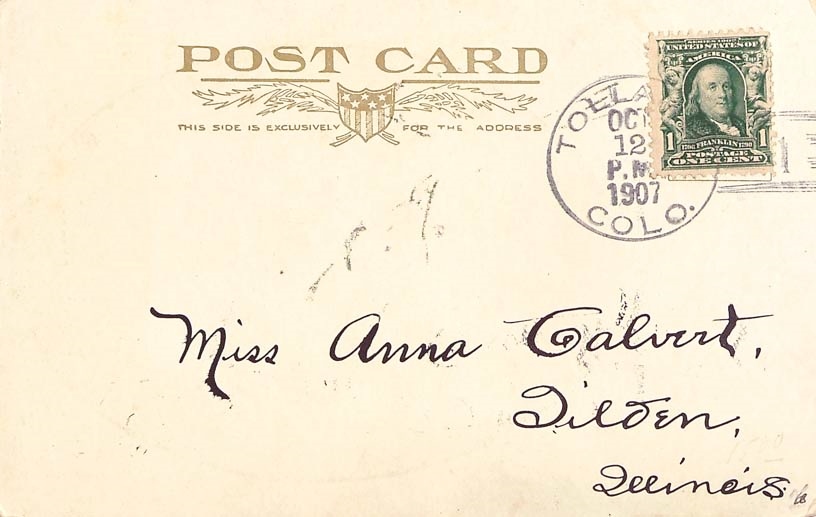 POST CARD
THIS SIDE IS EXCLUSIVELY FOR THE ADDRESS
SERIES 1902
UNITED STATES OF
AMERICA
1 1706 FRANKLIN 1790 1
POSTAGE
ONE CENT
OCT
12
P.M.
1907
COLO.
Miss Anna Calvert,
Tilden,
Illinois